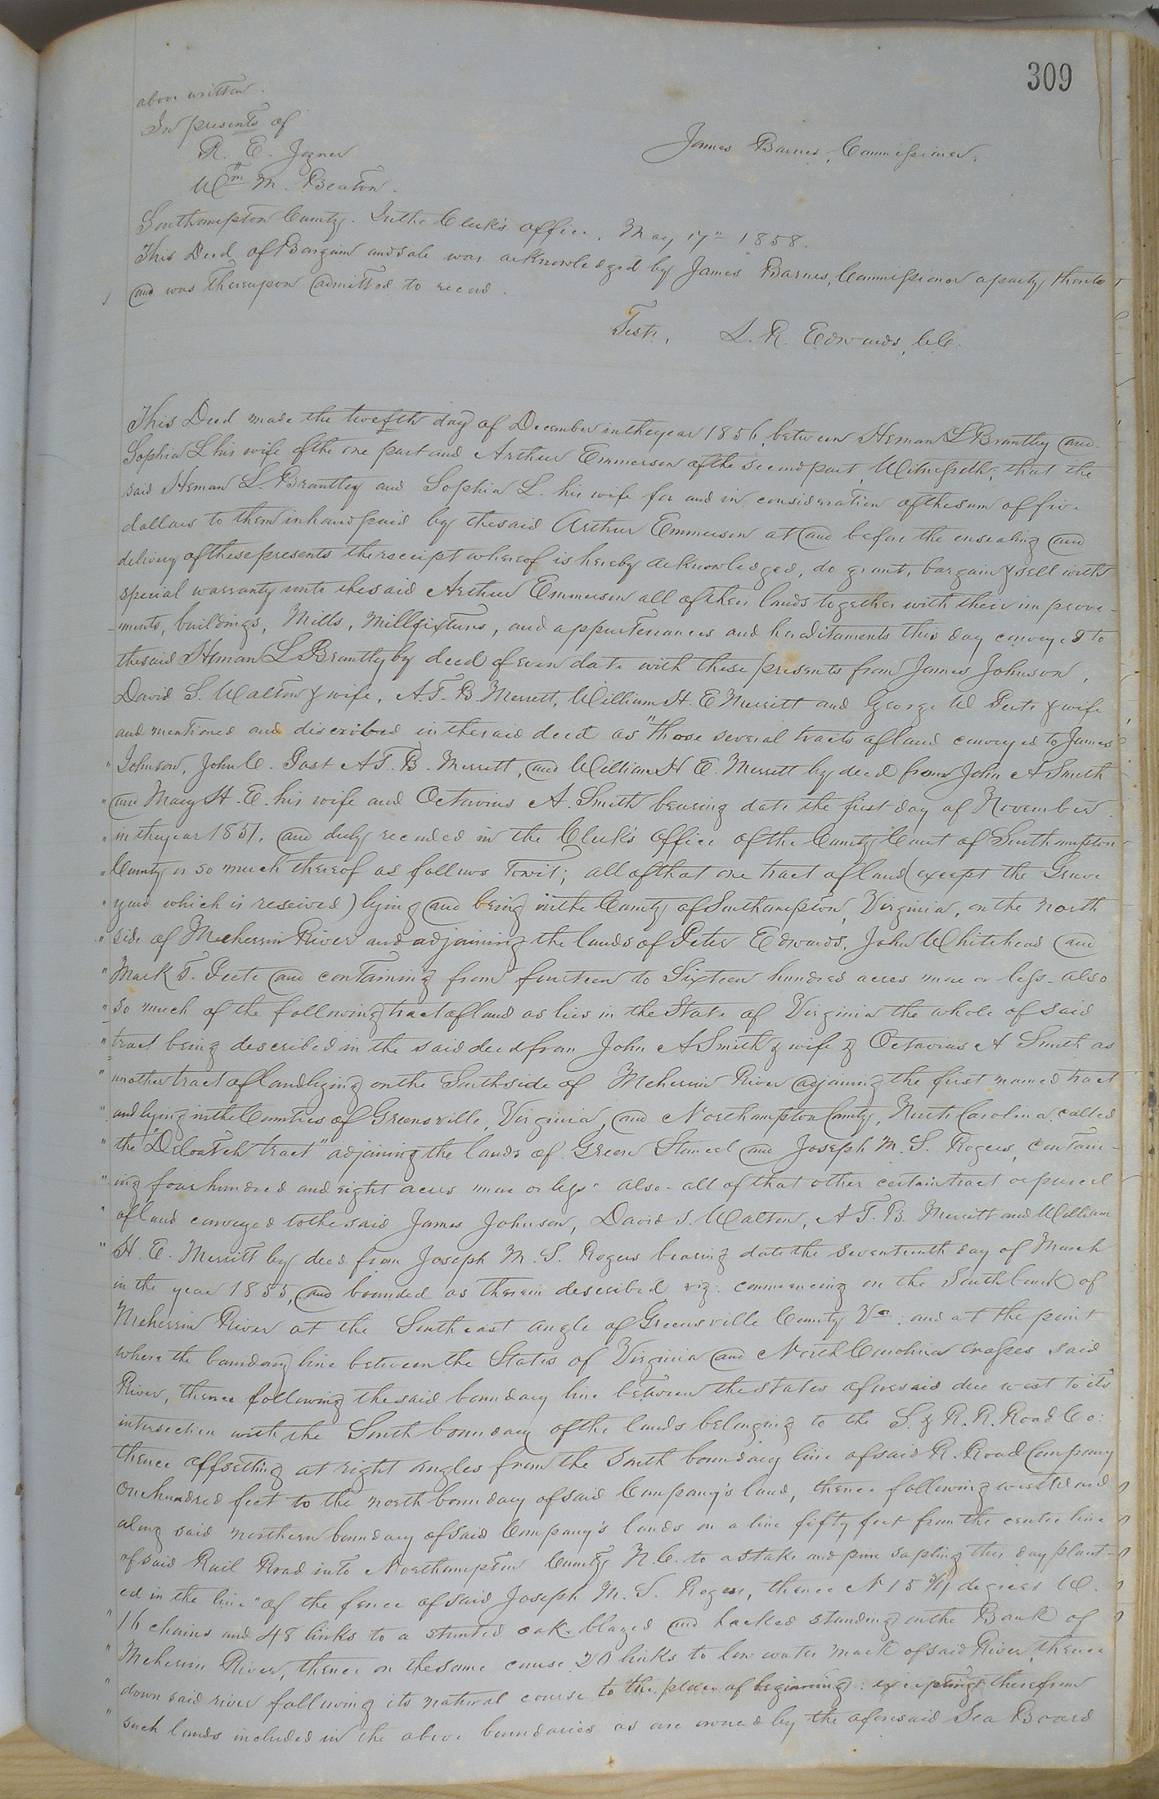 309
above written.
In presents of
R. E. Joyner
Wm M. Beaton.
James Barnes, Commissioner.
Southampton County. In the Clerk's office, May 17th 1858.
This Deed of Bargain and sale was acknowledged by James Barnes, Commissioner a party thereto
and was thereupon admitted to record.
Teste, L. R. Edwards, C.C.
This Deed made the twelfth day of December in the year 1856, between Heman L Brantley and
Sophia L his wife of the one part and Arthur Emmerson of the second part, Witnesseth, that the
said Heman L. Brantley and Sophia L. his wife for and in consideration of the sum of five
dollars to them in hand paid by the said Arthur Emmerson at and before the ensealing and
delivery of these presents the receipt whereof is hereby acknowledged, do grant, bargain & sell with
special warranty unto the said Arthur Emmerson all of their lands together with their improve-
ments, buildings, Mills, Millfixtures, and appurtenances and hereditaments this day conveyed to
the said Heman L Brantley by deed of even date with these presents from James Johnson,
David S. Walton & wife, A. T. B. Merrett, William H. E Merritt and George W Peete & wife
and mentioned and discribed in the said deed as "those several tracts of land conveyed to James
" Johnson, John C. Gast A T. B. Merrett, and William H E. Merrett by deed from John A Smith
" and Mary H. E. his wife and Octavius A. Smith bearing date the first day of November
" in the year 1851, and duly recorded in the Clerk's office of the County Court of Southampton
" County or so much thereof as follows Towit; all of that one tract of land (except the Grave
" yard which is reserved) lying and being in the County of Southampton, Virginia, on the north
" side of Meherrin River and adjoining the lands of Peter Edwards, John Whitehead and
" Mark T. Peete and containing from fourteen to Sixteen hundred acres more or less - also
" so much of the following tract of land as lies in the State of Virginia the whole of said
" tract being described in the said deed from John A Smith & wife & Octavius A Smith as
" another tract of land lying on the South side of Meherrin River adjoining the first named tract
" and lying in the Counties of Greensville, Virginia, and Northampton County, North Carolina called
" the "Deloatch tract" adjoining the lands of Green Stancel and Joseph M. S. Rogers, contain-
" ing four hundred and eight acres more or less - also - all of that other certain tract or parcel
" of land conveyed to the said James Johnson, David S. Walton, A T. B. Merritt and William
" H. E. Merritt by deed from Joseph M. S. Rogers bearing date the seventeenth day of March
in the year 1855, and bounded as therein described viz: commencing on the South bank of
Meherrin River at the South east angle of Greensville County Va: and at the point
where the boundary line between the States of Virginia and North Carolina crosses said
River, thence following the said boundary line between the states aforesaid due west to its
intersection with the South boundary of the lands belonging to the S. & R. R. Road Co:
thence offsetting at right angles from the South boundary line of said R. Road Company
One hundred feet to the north boundary of said Company's land, thence following westward
along said northern boundary of said Company's lands on a line fifty feet from the centre line
of said Rail Road into Northampton County N.C. to a stake and pine sapling this day plant-
ed in the line" of the fence of said Joseph M. S. Rogers, thence N 15 3/4 degrees W.
" 16 chains and 48 links to a stunted oak blazed and hacked standing on the Bank of
" Meherrin River, thence on the same course 20 links to low water mark of said River, thence
" down said river following its natural course to the place of beginning: excepting therefrom
" such lands included in the above boundaries as are owned by the aforesaid Sea Board